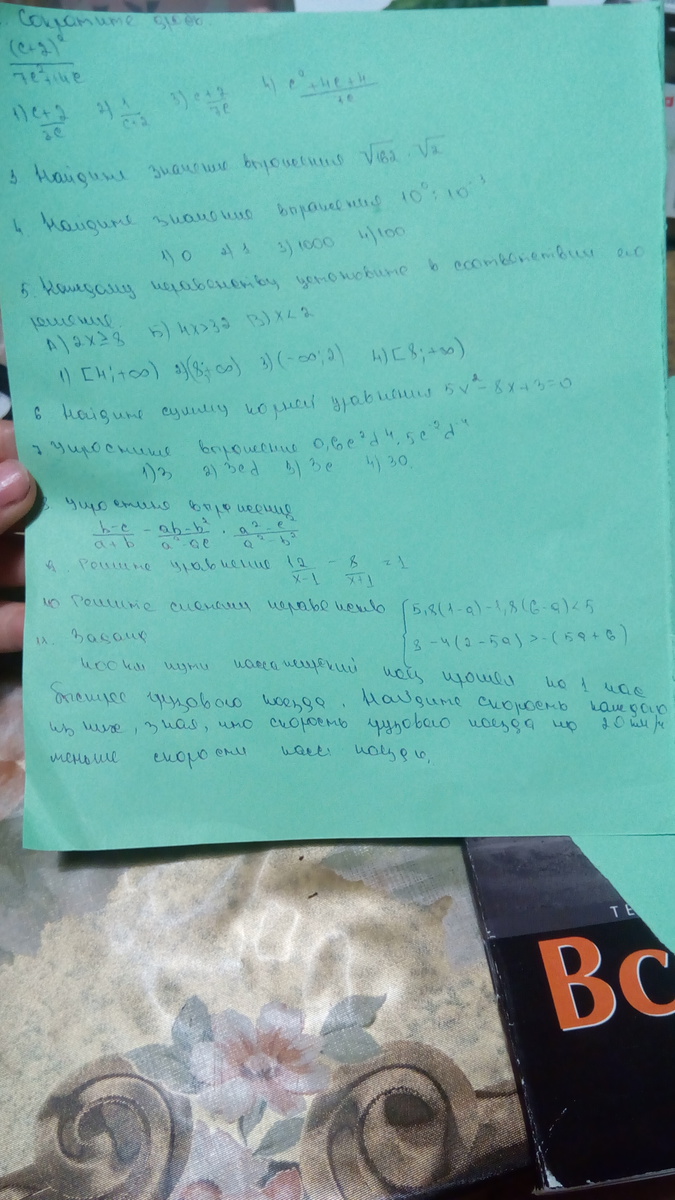 Сократите дробь.
(c+2)²
7c²+14c
1) c+2/7c 2) 1/c+2 3) c+2/7c 4) c²+4c+4/7c
3 Найдите значение выражения √162 · √2
4 Найдите значение выражения 10⁰ : 10⁻³
1) 0 2) 1 3) 1000 4) 100
5. Каждому неравенству установите в соответствии его
решение.
А) 2x≥8 Б) 4x>32 В) x<2
1) [4;+∞) 2) (8;+∞) 3) (-∞;2) 4) [8;+∞)
6 Найдите сумму корней уравнения 5x²-8x+3=0
7 Упростите выражение 0,6c²d⁴·5c⁻²d⁻⁴
1) 3 2) 3cd 3) 3c 4) 30
Упростите выражение
b-c/a+b - ab-b²/a²-ac · a²-c²/a²-b²
9. Решите уравнение 12/x-1 - 8/x+1 = 1
10 Решите систему неравенств { 5,8(1-a)-1,8(6-a)<5
8-4(2-5a)>-(5a+6)
11 Задача
400 км пути пассажирский поезд прошел на 1 час
быстрее грузового поезда. Найдите скорость каждого
из них, зная, что скорость грузового поезда на 20 км/ч
меньше скорости пасс поезда.
ТЕ
Вс